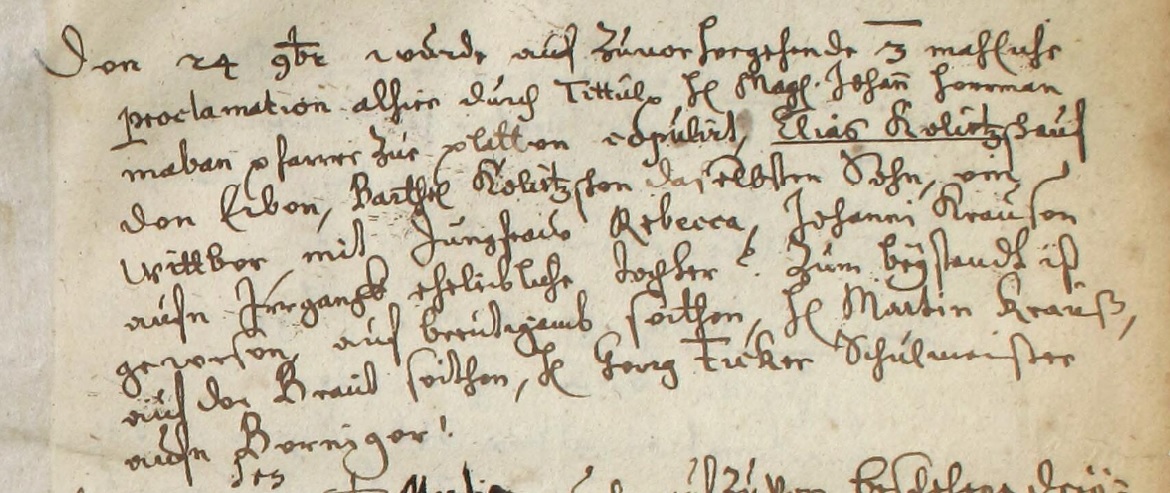 Den 24 9br wurde auf zuvor hergehende 3 mahliche
proclamation alhier durch Tittul. H. Mag. Johan Herrman
maban pfarrer zur platten copulirt, Elias Kolitzsch auf
den Erben, Barthel Kolitzschen daselbsten Sohn, ein
wittber, mit Jungfraw Rebecca, Johanni Kraußen
aufn Irrgangk eheleibliche tochter. Zum beystandt ist
gewesen, auf breutigamb seithen, H. Martin Krauß,
auf der Braut seithen, H. Georg Tucker Schulmeister
aufn Berniger.